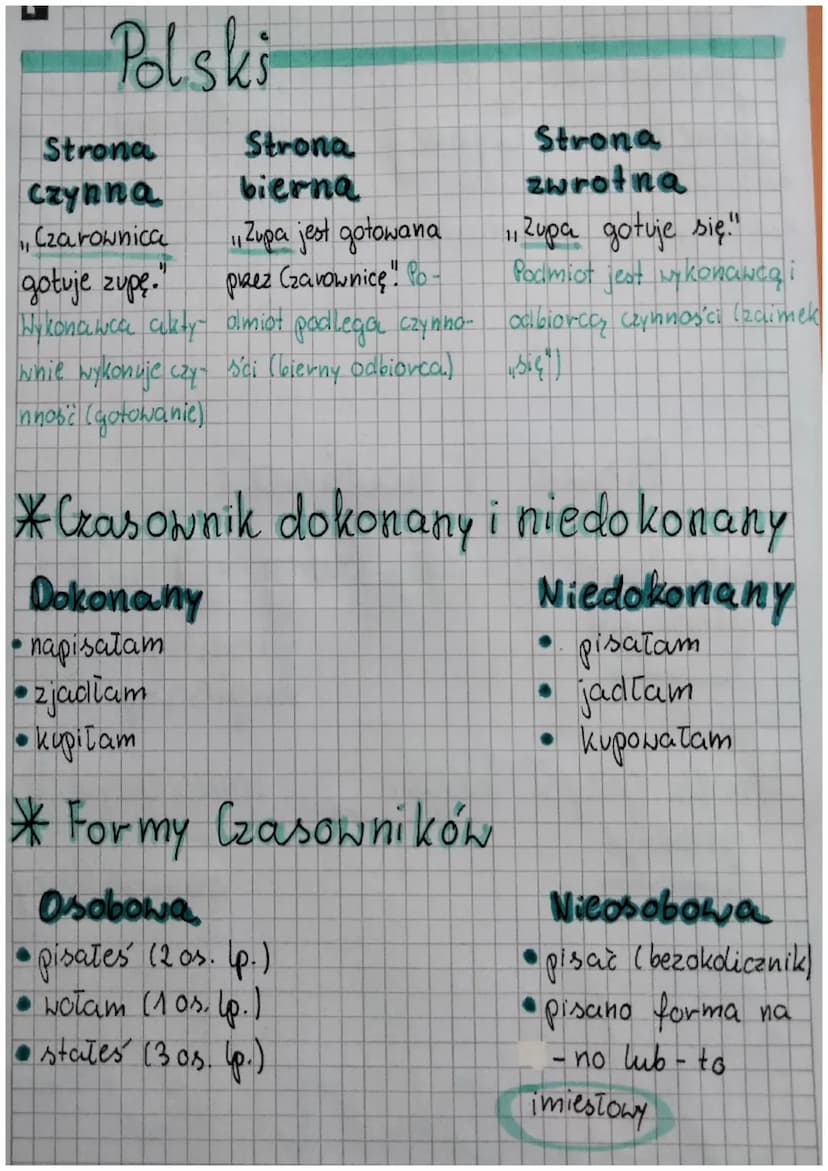 Polski
Strona
czynna
„Czarownica
gotuje zupę."
Wykonawca akty-
wnie wykonuje czy-
nność (gotowanie)
Strona
bierna
„Zupa jest gotowana
przez Czarownicę". Po-
dmiot podlega czynno-
ści (bierny odbiorca)
Strona
zwrotna
„Zupa gotuje się."
Podmiot jest wykonawcą i
odbiorcą czynności (zaimek
„się")
* Czasownik dokonany i niedokonany
Dokonany
• napisałam
• zjadłam
• kupiłam
Niedokonany
• pisałam
• jadłam
• kupowałam
* Formy Czasowników
Osobowa
• pisałeś (2 os. lp.)
• wołam (1 os. lp.)
• stałeś (3 os. lp.)
Nieosobowa
• pisać (bezokolicznik)
• pisano forma na
- no lub - to
imiesłowy